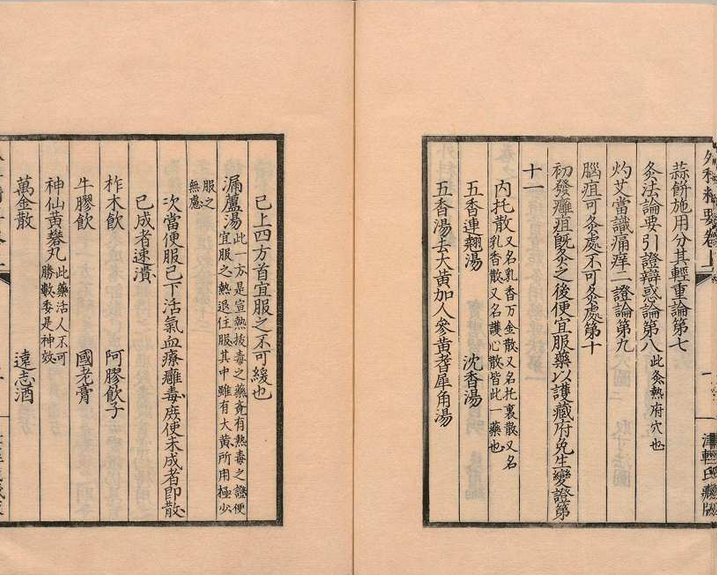 外科精要卷上
津輕氏藏版
蒜餅施用分其輕重論第七
灸法論要引證辯惑論第八此灸熱府穴也
灼艾當識痛痒二證論第九
腦疽可灸處不可灸處第十
初發癰疽既灸之後便宜服藥以護藏府免生變證第
十一
內托散又名乳香万金散又名托裏散又名
乳香散又名護心散皆此一藥也
五香連翹湯
沈香湯
五香湯去大黃加人參黃耆犀角湯
已上四方首宜服之不可緩也
漏蘆湯此一方是宣熱拔毒之藥覺有熱毒之證便
宜服之熱退住服其中雖有大黃所用極少
服之
無慮
次當便服已下活氣血療癰毒庶使未成者即散
已成者速潰
柞木飲
阿膠飲子
牛膠飲
國老膏
神仙黃礬丸此藥活人不可
勝數委是神效
萬金散
遠志酒